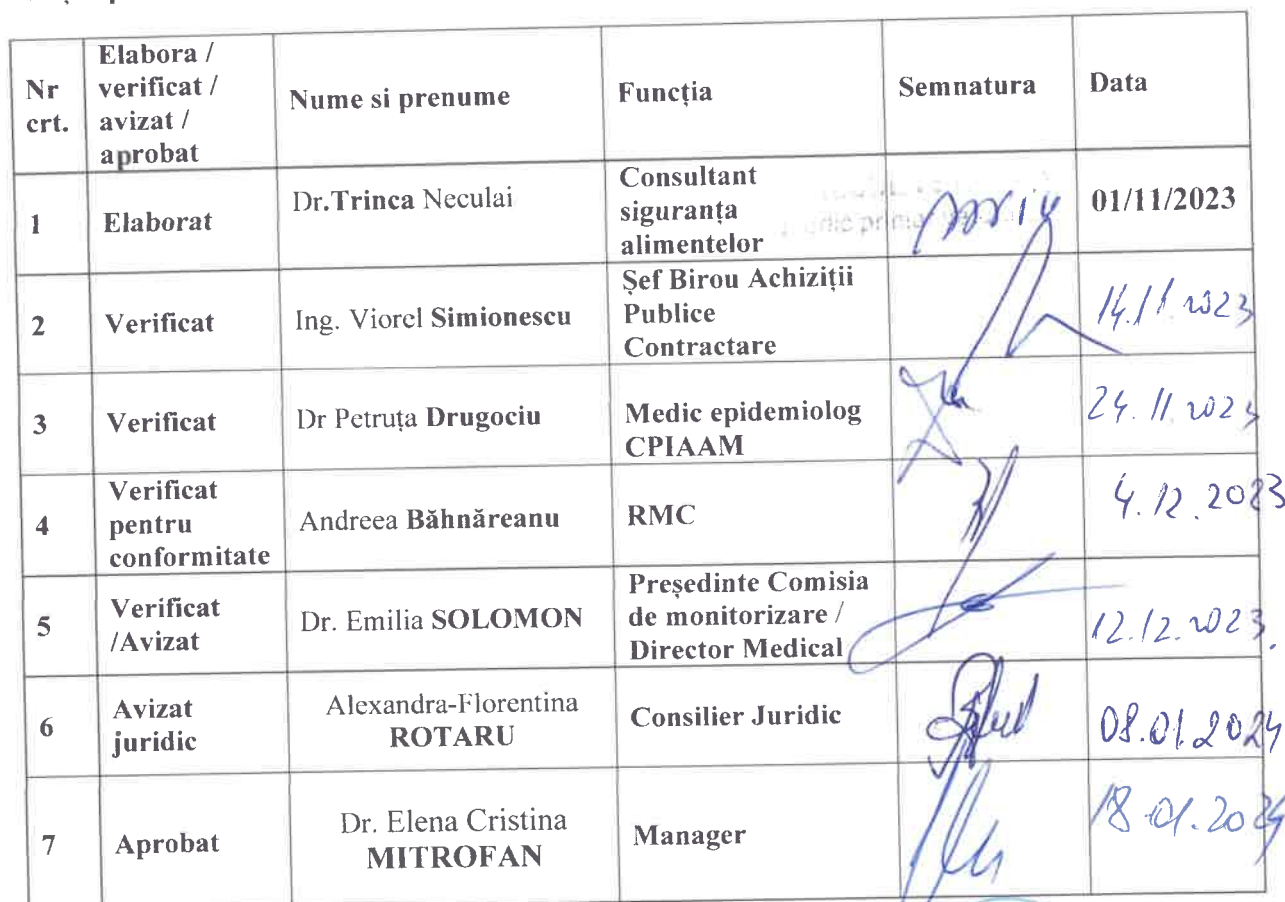 Nr crt.
Elabora / verificat / avizat / aprobat
Nume si prenume
Funcția
Semnatura
Data
1
Elaborat
Dr.Trinca Neculai
Consultant
siguranța
alimentelor
01/11/2023
2
Verificat
Ing. Viorel Simionescu
Șef Birou Achiziții
Publice
Contractare
14.11.2023
3
Verificat
Dr Petruța Drugociu
Medic epidemiolog
CPIAAM
24.11.2023
4
Verificat
pentru
conformitate
Andreea Băhnăreanu
RMC
4.12.2023
5
Verificat
/Avizat
Dr. Emilia SOLOMON
Președinte Comisia
de monitorizare /
Director Medical
12.12.2023.
6
Avizat
juridic
Alexandra-Florentina
ROTARU
Consilier Juridic
08.01.2024
7
Aprobat
Dr. Elena Cristina
MITROFAN
Manager
18.01.2024